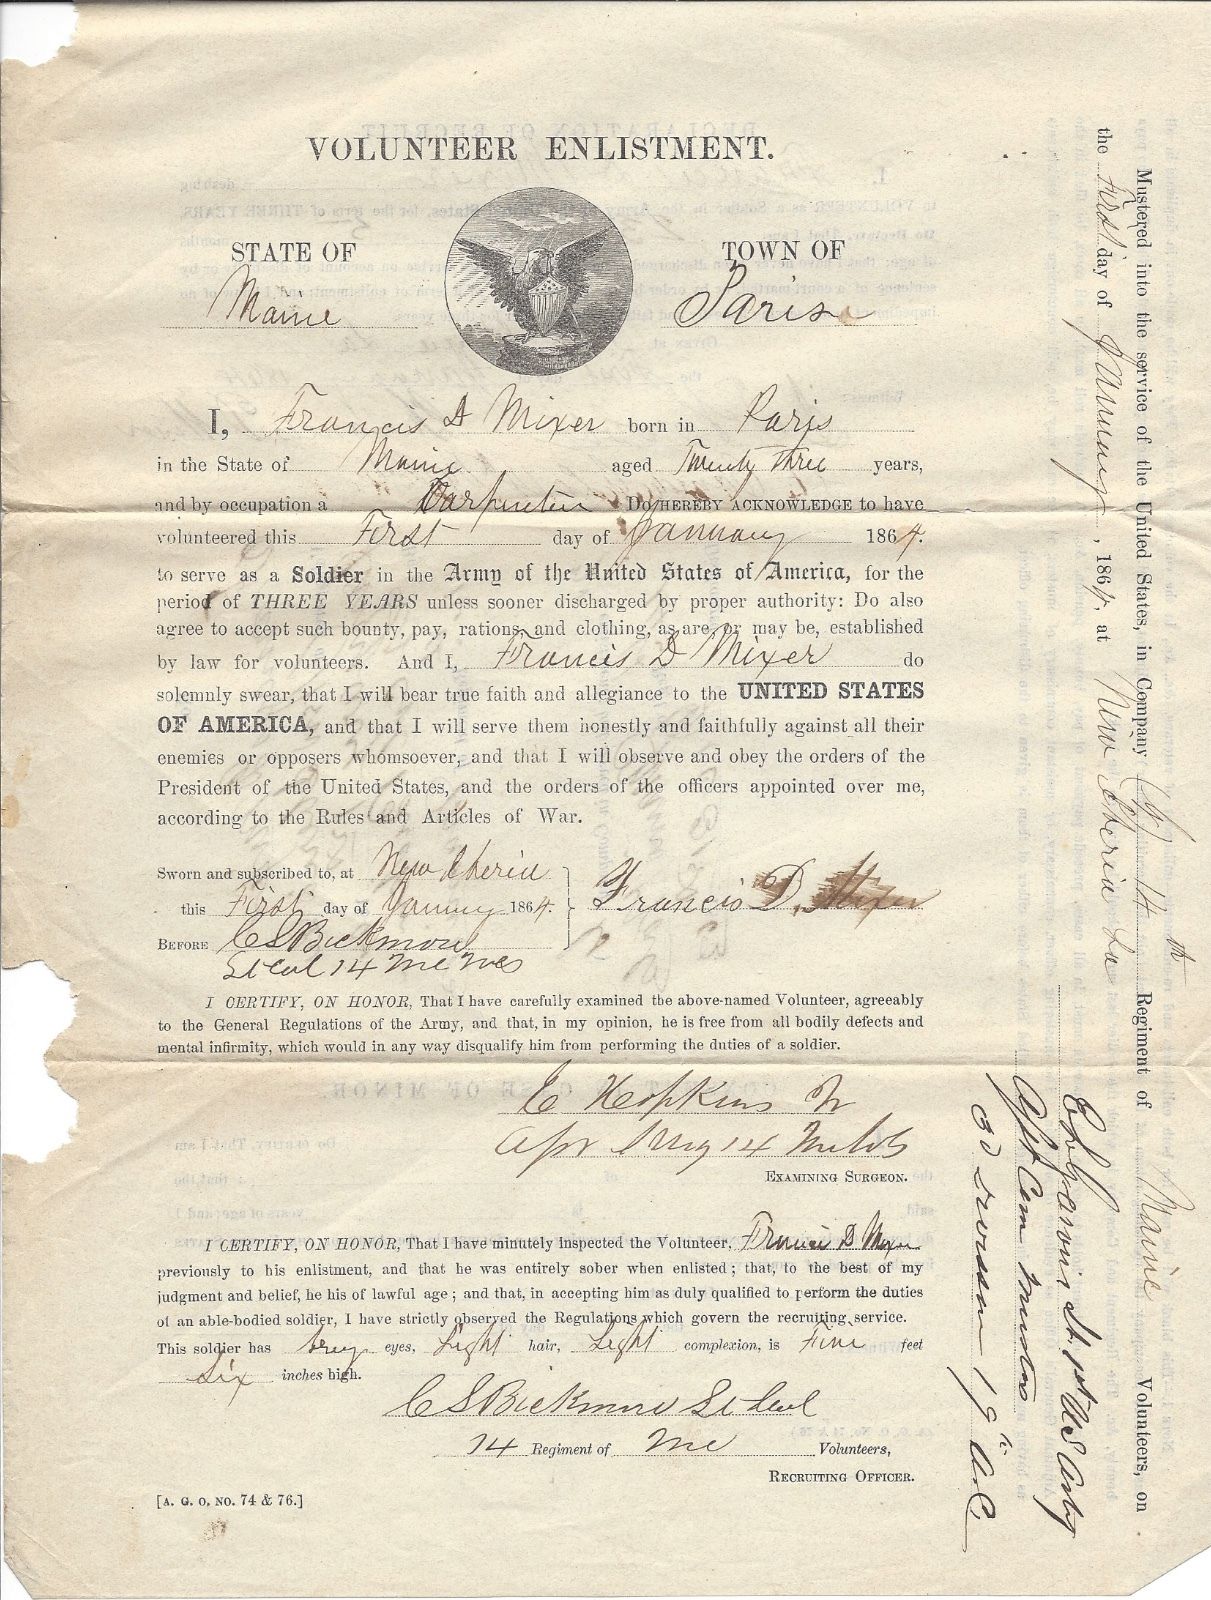 VOLUNTEER ENLISTMENT.
STATE OF
TOWN OF
Maine
Paris
I, Francis D Mixer born in Paris
in the State of Maine aged Twenty three years,
and by occupation a Carpenter DO HEREBY ACKNOWLEDGE to have
volunteered this First day of January 1864.
to serve as a Soldier in the Army of the United States of America, for the
period of THREE YEARS unless sooner discharged by proper authority: Do also
agree to accept such bounty, pay, rations, and clothing, as are, or may be, established
by law for volunteers. And I, Francis D Mixer do
solemnly swear, that I will bear true faith and allegiance to the UNITED STATES
OF AMERICA, and that I will serve them honestly and faithfully against all their
enemies or opposers whomsoever, and that I will observe and obey the orders of the
President of the United States, and the orders of the officers appointed over me,
according to the Rules and Articles of War.
Sworn and subscribed to, at New Iberia
this First day of January 1864.
Francis D. Mixer
BEFORE C S Bickmore
Lt Col 14 Me Vols
I CERTIFY, ON HONOR, That I have carefully examined the above-named Volunteer, agreeably
to the General Regulations of the Army, and that, in my opinion, he is free from all bodily defects and
mental infirmity, which would in any way disqualify him from performing the duties of a soldier.
C Hopkins Jr
14 Me Vols
EXAMINING SURGEON.
I CERTIFY, ON HONOR, That I have minutely inspected the Volunteer, Francis D Mixer
previously to his enlistment, and that he was entirely sober when enlisted; that, to the best of my
judgment and belief, he his of lawful age; and that, in accepting him as duly qualified to perform the duties
of an able-bodied soldier, I have strictly observed the Regulations which govern the recruiting service.
This soldier has Grey eyes, Light hair, Light complexion, is Five feet
Six inches high.
C S Bickmore Lt Col
14 Regiment of Me Volunteers,
RECRUITING OFFICER.
[A. G. O. NO. 74 & 76.]
Mustered into the service of the United States, in Company 14th Regiment of Maine Volunteers, on
the First day of January, 1864, at New Iberia La
Lt 1st US Arty
Asst Com Musters
3d Division 19th A.C.